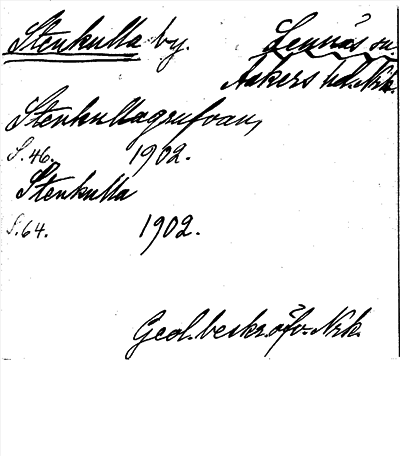 Stenkulla by. Lennäs sn.
Askers hd. Nrk.
Stenkullagrufvan,
S. 46. 1902.
Stenkulla
S. 64. 1902.
Geol. beskr. öfv. Nrk.